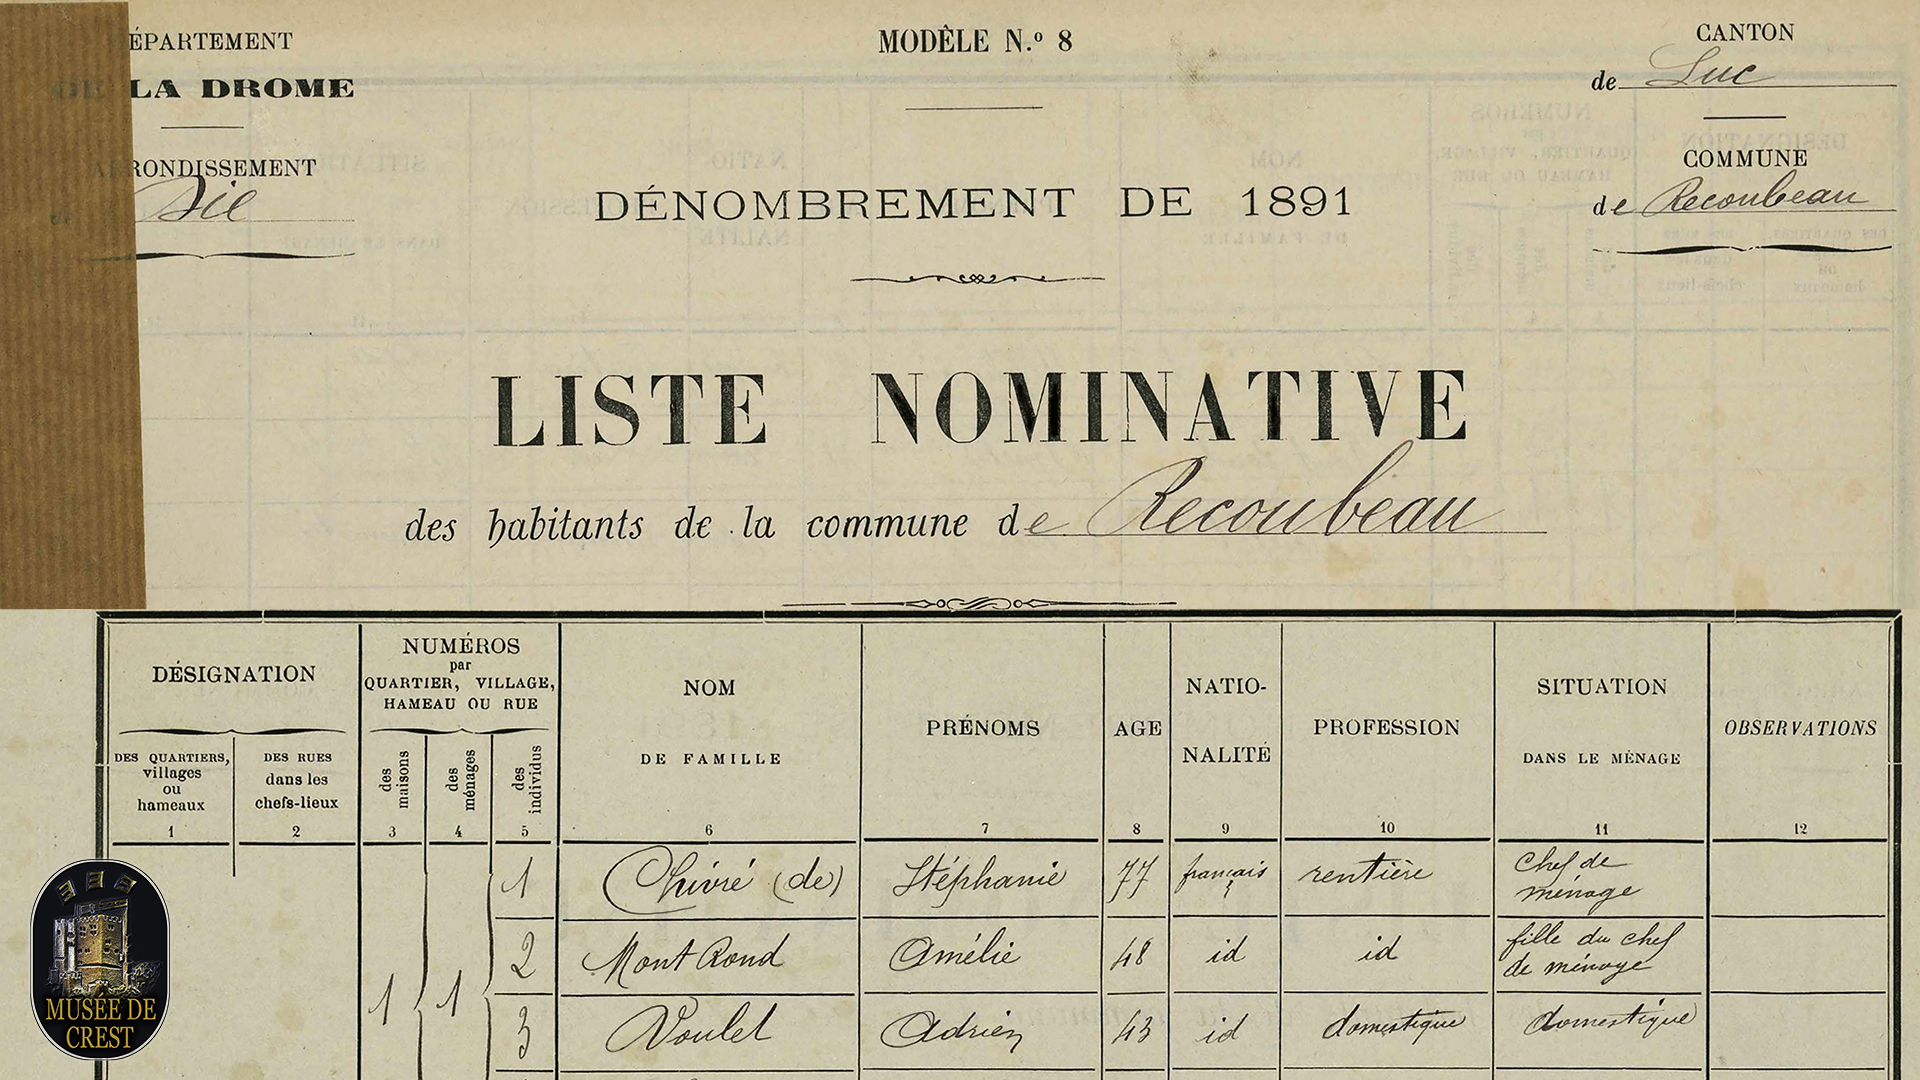 DÉPARTEMENT
DE LA DROME
ARRONDISSEMENT
de Die
MODÈLE N.º 8
DÉNOMBREMENT DE 1891
CANTON
de Luc
COMMUNE
de Recoubeau
LISTE NOMINATIVE
des habitants de la commune de Recoubeau
DÉSIGNATION
DES QUARTIERS,
villages
ou
hameaux
1
DES RUES
dans les
chefs-lieux
2
NUMÉROS
par
QUARTIER, VILLAGE,
HAMEAU OU RUE
des maisons
3
des ménages
4
des individus
5
NOM
DE FAMILLE
6
PRÉNOMS
7
AGE
8
NATIO-
NALITÉ
9
PROFESSION
10
SITUATION
DANS LE MÉNAGE
11
OBSERVATIONS
12
1 Chivré (de) Stéphanie 77 français rentière Chef de ménage
2 Mont Rond Amélie 48 id id fille du chef de ménage
1 1 3 Voulet Adrien 43 id domestique domestique
MUSÉE DE
CREST